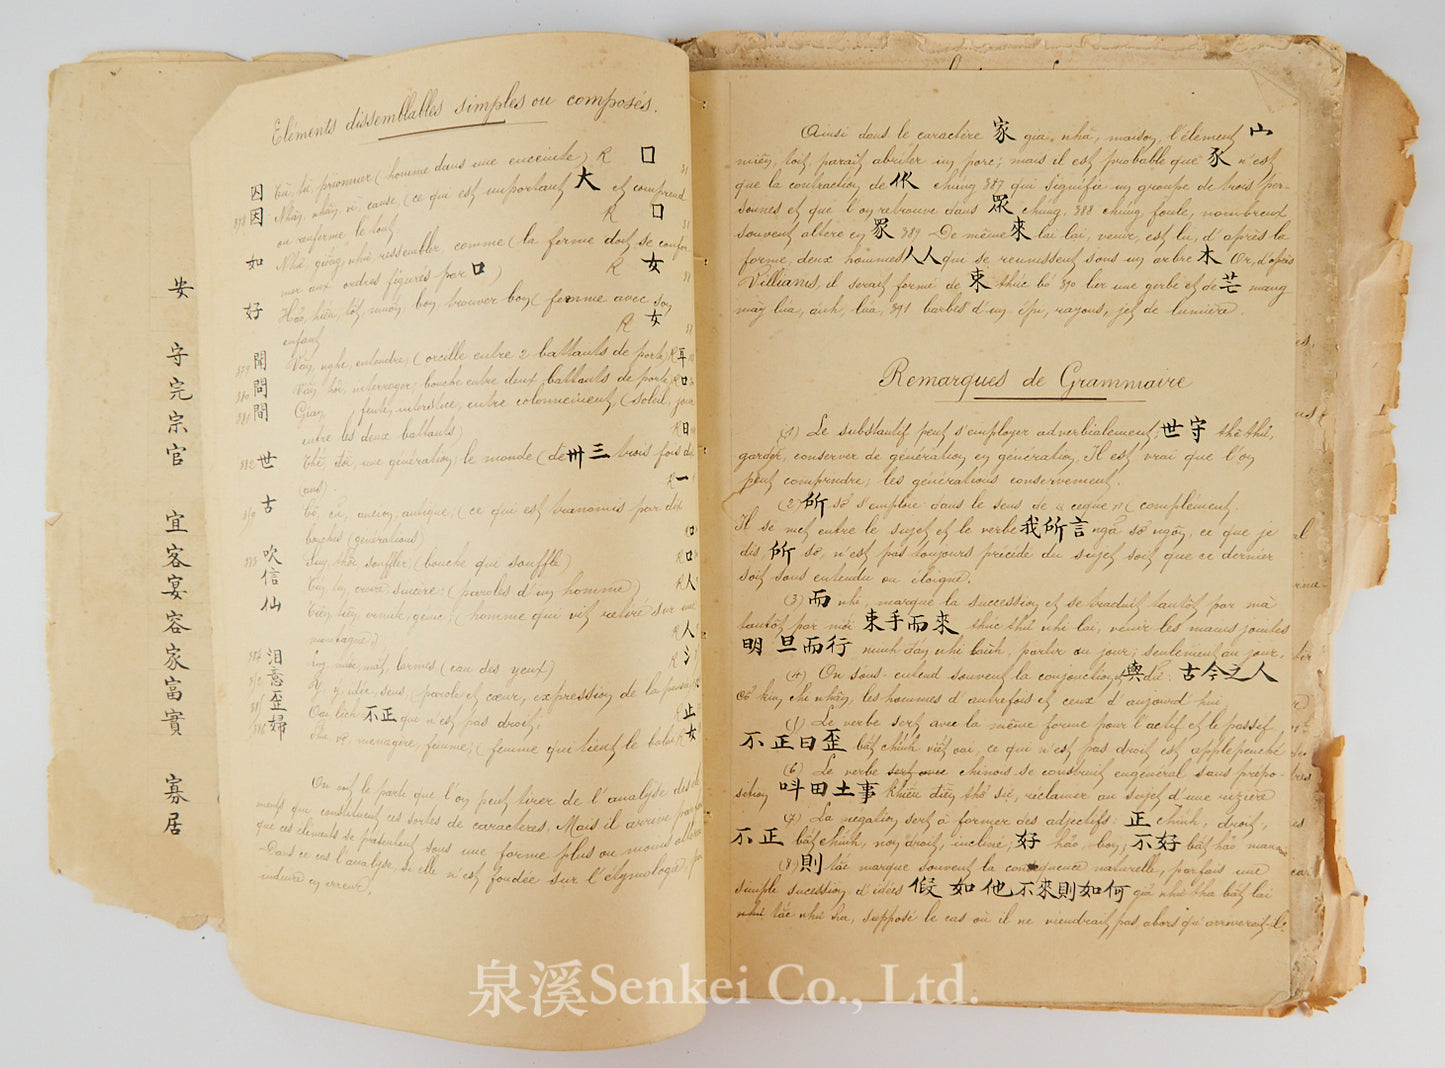 安
守
完
宗
官
宜
客
宴
容
家
富
實
寡
居
Eléments dissemblables simples ou composés.
囚 Tù, tù, prisonnier (homme dans une enceinte) R 口
378 因 Nhân, nhân, vì, cause, (ce qui est important 大 et comprend
ou renferme le tout R 口
如 Như, giống, như, ressembler, comme (la femme doit se confor
mer aux ordres figurés par 口) R 女
好 Hảo, hiếu, tốt, muốn, bon, trouver bon (femme avec son
enfant R 女
379 聞 Văn, nghe, entendre, (oreille entre 2 battants de porte) R 耳
380 問 Vấn, hỏi, interroger; bouche entre deux battants de porte R 口
381 間 Gian, fente, interstice, entre (soleil, jour
entre les deux battants) R 日
382 世 Thế, đời, une génération; le monde (de 卅 三 trois fois dix
ans). R 一
古 Cổ, cũ, ancien, antique; (ce qui est transmis par dix
bouches (générations) 口
383 吹 Suy, thổi, souffler, (bouche qui souffle) R 口
信 Tín, tin, croire; sincère; (paroles d'un homme) R 人
仙 Tiên, tiên, ermite, génie; (homme qui vit retiré sur une
montagne.) R 人
384 泪 mắt, larmes (eau des yeux) R 氵
意 Ý, ý, idée, sens, (parole et cœur, expression de la pensée
歪 Oai, lệch 不正 que n'est pas droit; R 止
386 婦 Phụ, vợ, ménagère, femme, (femme qui tient le balai R 女
On voit le parti que l'on peut tirer de l'analyse des élé
ments qui constituent ces sortes de caractères. Mais il arrive parfois
que ces éléments se présentent sous une forme plus ou moins altérée
Dans ce cas l'analyse, si elle n'est fondée sur l'étymologie, peut
induire en erreur.
Ainsi dans le caractère 家 gia, nhà, maison, l'élément 宀
miên, toit, paraît abriter un porc; mais il est probable que 豕 n'est
que la contraction de 㐺 chúng 387 qui signifie un groupe de trois per-
sonnes et que l'on retrouve dans 眾 chúng, 388 chúng, foule, nombreux
souvent altéré en 罞 389 De même 來 lai lai, venir, est lu, d'après la
forme, deux hommes 人人 qui se reunissent sous un arbre 木 Or, d'après
Villianis, il serait formé de 束 thúc bó 390 lier une gerbe et de 芒 mang
mày lúa, ánh, lúa, 391 barbes d'un épi, rayons, jet de lumière.
Remarques de Grammaire
(1) Le substantif peut s'employer adverbialement; 世守 thế thủ,
garder, conserver de génération en génération. Il est vrai que l'on
peut comprendre; les générations conservement.
(2) 所 sở s'emploie dans le sens de « ceque » (complément.
Il se met entre le sujet et le verbe 我所言 ngã sở ngôn, ce que je
dis, 所 sở, n'est pas toujours précédé du sujet soit que ce dernier
soit sous entendu ou éloigné.
(3) 而 nhi, marque la succession et se traduit tantôt par mà
tantôt par mới 束手而來 thúc thủ nhi lai, venir les mains jointes
明旦而行 minh đán nhi hành, partir au jour; seulement au jour,
(4) On sous-entend souvent la conjonction 與 dữ: 古今之人
cổ kim chi nhân, les hommes d'autrefois et ceux d'aujourd'hui
(5) Le verbe sert avec la même forme pour l'actif et le passif
不正曰歪 bất chính viết oai, ce qui n'est pas droit est appelé penché
(6) Le verbe sert avec chinois se construit en général sans prépo-
sition 呌田土事 khiếu điền thổ sự, réclamer au sujet d'une rizière
(7) La négation sert à former des adjectifs: 正 chính, droit,
不正 bất chính, non droit, incliné; 好 hảo, bon, 不好 bất hảo mauvais
(8) 則 tắc marque souvent la conséquence naturelle, parfois une
simple sucession d'idées 假如他不來則如何 giả như tha bất lai
như tắc như hà, supposé le cas où il ne viendrait pas, alors qu'arriverait-il.
泉溪Senkei Co., Ltd.